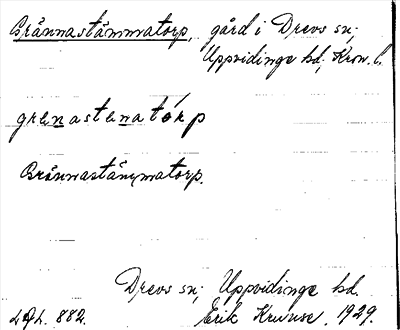 Brännastämmatorp, gård i Drevs sn;
Uppvidinge hd; Kron. l.
grenastenatórp
Brännastämmatorp.
Drevs sn; Uppvidinge hd.
882. Erik Kruuse, 1929.